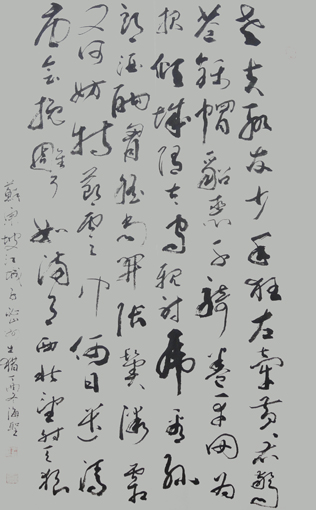 老夫聊發少年狂左牽黃右擎
蒼錦帽貂裘千騎卷平岡為
報傾城隨太守親射虎看孫
郎酒酣胸膽尚開張鬢微霜
又何妨持節雲中何日遣馮
唐會挽雕弓如滿月西北望射天狼
蘇東坡江城子密州出獵